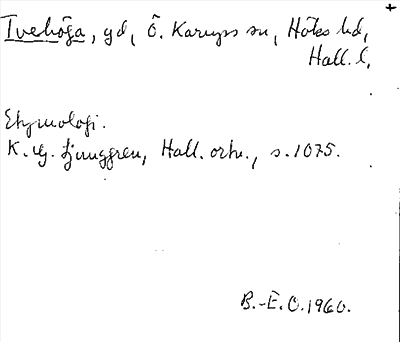 Tvehöga, gd, Ö. Karups sn, Höks hd,
Hall. l.
Etymologi.
K. G. Ljunggren, Hall. ortn., s. 1075.
B.-E. O. 1960.